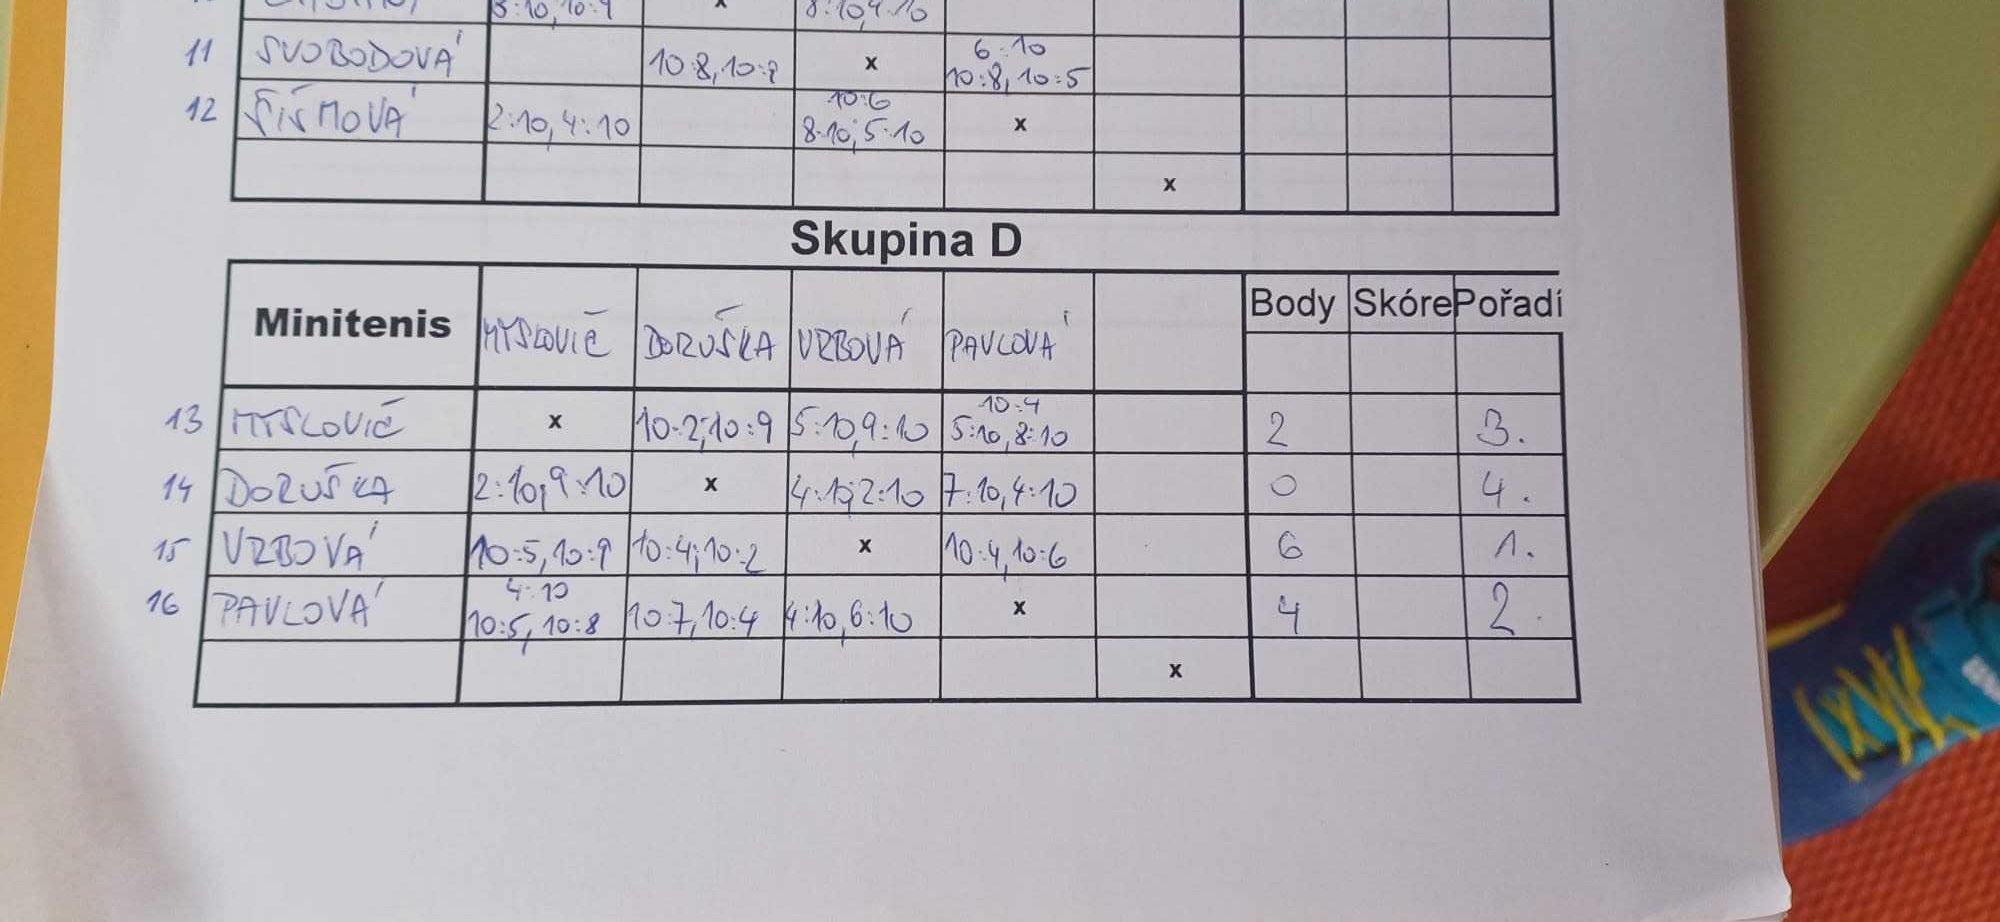 3:10, 10:9 x 8:10, 9:10
11 SVOBODOVÁ 10:8, 10:9 x 6:10 10:8, 10:5
12 ŠIŠMOVÁ 2:10, 4:10 10:6 8:10; 5:10 x
x
Skupina D
Minitenis MYSLOVIČ DORUŠKA VRBOVÁ PAVLOVÁ Body Skóre Pořadí
13 MYSLOVIČ x 10:2; 10:9 5:10, 9:10 10:4 5:10, 8:10 2 3.
14 DORUŠKA 2:10, 9:10 x 4:10; 2:10 7:10, 4:10 0 4.
15 VRBOVÁ 10:5, 10:9 10:4; 10:2 x 10:4, 10:6 6 1.
16 PAVLOVÁ 4:10 10:5, 10:8 10:7, 10:4 4:10, 6:10 x 4 2.
x